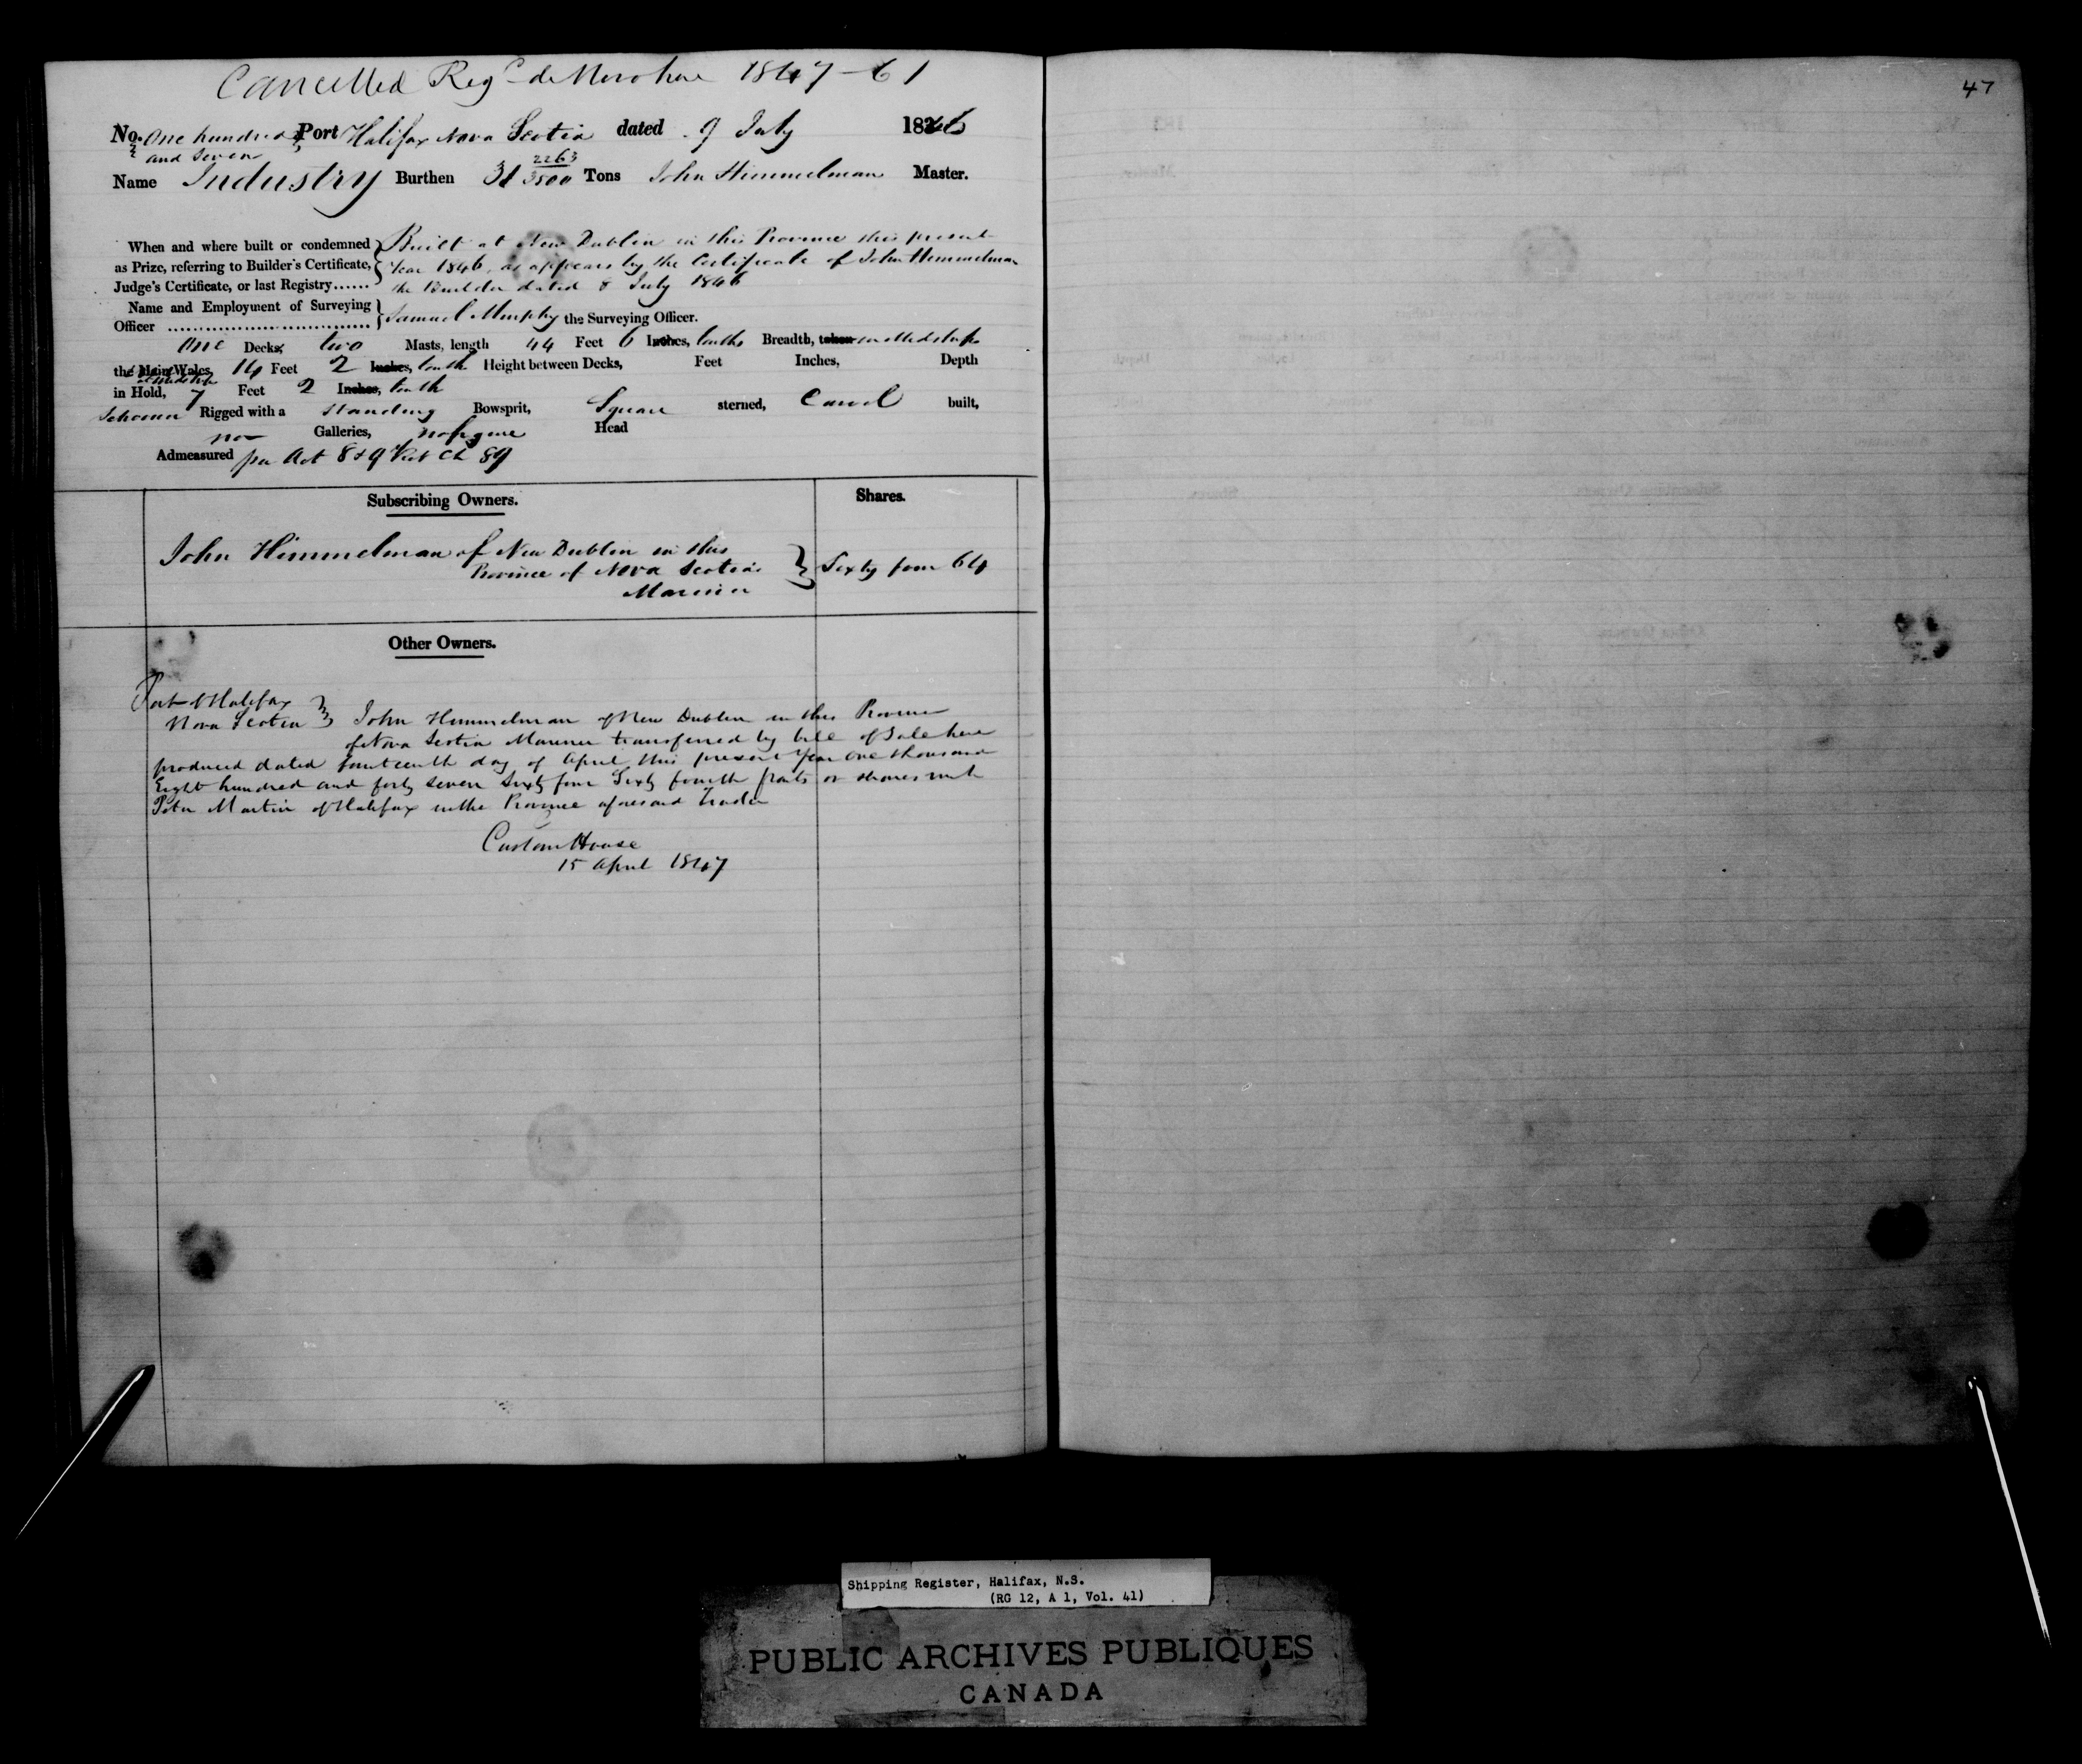 Cancelled Regd de Novo here 1847 - 61
47
No. One hundred and Seven Port Halifax Nova Scotia dated 9 July 1846
Name Industry Burthen 31 2263/3500 Tons John Himmelman Master.
When and where built or condemned as Prize, referring to Builder's Certificate, Judge's Certificate, or last Registry...... } Built at New Dublin in this Province this present
Year 1846, as appears by the Certificate of John Himmelman
the Builder dated 8 July 1846
Name and Employment of Surveying Officer } Samuel Murphy the Surveying Officer.
One Decks, two Masts, length 44 Feet 6 Inches, tenths Breadth, taken in Midships
the Main Wales, 14 Feet 2 Inches, tenths Height between Decks, Feet Inches, Depth
in Hold, at Midships 7 Feet 2 Inches, tenths
Schooner Rigged with a Standing Bowsprit, Square sterned, Carvel built,
no Galleries, no figure Head
Admeasured per Act 8 & 9 Vict Ch 89
Subscribing Owners. Shares.
John Himmelman of New Dublin in this
Province of Nova Scotia } Sixty four 64
Mariner
Other Owners.
Port of Halifax
Nova Scotia } John Himmelman of New Dublin in this Province
of Nova Scotia Mariner transferred by bill of Sale here
produced dated fourteenth day of April this present Year One thousand
Eight hundred and forty seven Sixty four Sixty fourth parts or shares unto
Peter Martin of Halifax in the Province aforesaid Trader
Custom House
15 April 1847
Shipping Register, Halifax, N.S.
(RG 12, A 1, Vol. 41)
PUBLIC ARCHIVES PUBLIQUES
CANADA